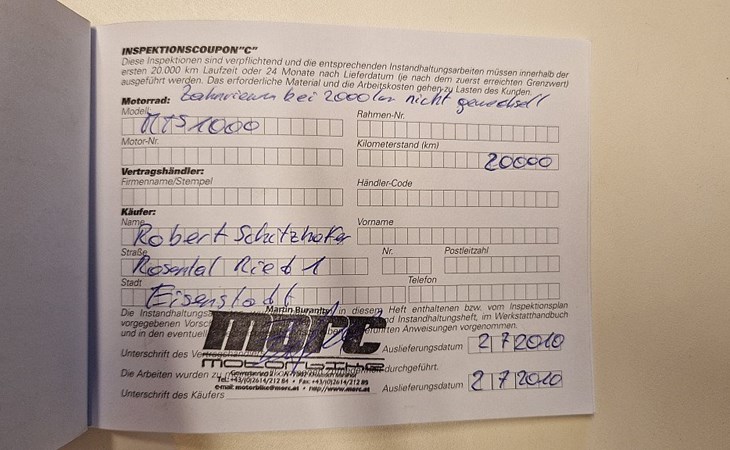 INSPEKTIONSCOUPON"C"
Diese Inspektionen sind verpflichtend und die entsprechenden Instandhaltungsarbeiten müssen innerhalb der
ersten 20.000 km Laufzeit oder 24 Monate nach Lieferdatum (je nach dem zuerst erreichten Grenzwert)
ausgeführt werden. Das erforderliche Material und die Arbeitskosten gehen zu Lasten des Kunden.
Motorrad: Zahnriemen bei 2000km nicht gewechselt
Modell MTS1000 Rahmen-Nr.
Motor-Nr. Kilometerstand (km) 20000
Vertragshändler:
Firmenname/Stempel Händler-Code
Käufer:
Name Robert Schitzhofer Vorname
Straße Rosental Ried 1 Nr. Postleitzahl
Stadt Eisenstadt Telefon
Die in diesem Heft enthaltenen bzw. vom Inspektionsplan
vorgegebenen Instandhaltungsheft, im Werkstatthandbuch
und in den eventuell Anweisungen vorgenommen.
marc
motorbike
Unterschrift des Auslieferungsdatum 2 7 2010
Tel.:+43/(0)2614/212 84 • Fax: +43/(0)2614/212 85
e-mail: motorbike@marc.at • http://www.marc.at
Die Arbeiten wurden zu durchgeführt.
Auslieferungsdatum 2 7 2010
Unterschrift des Käufers